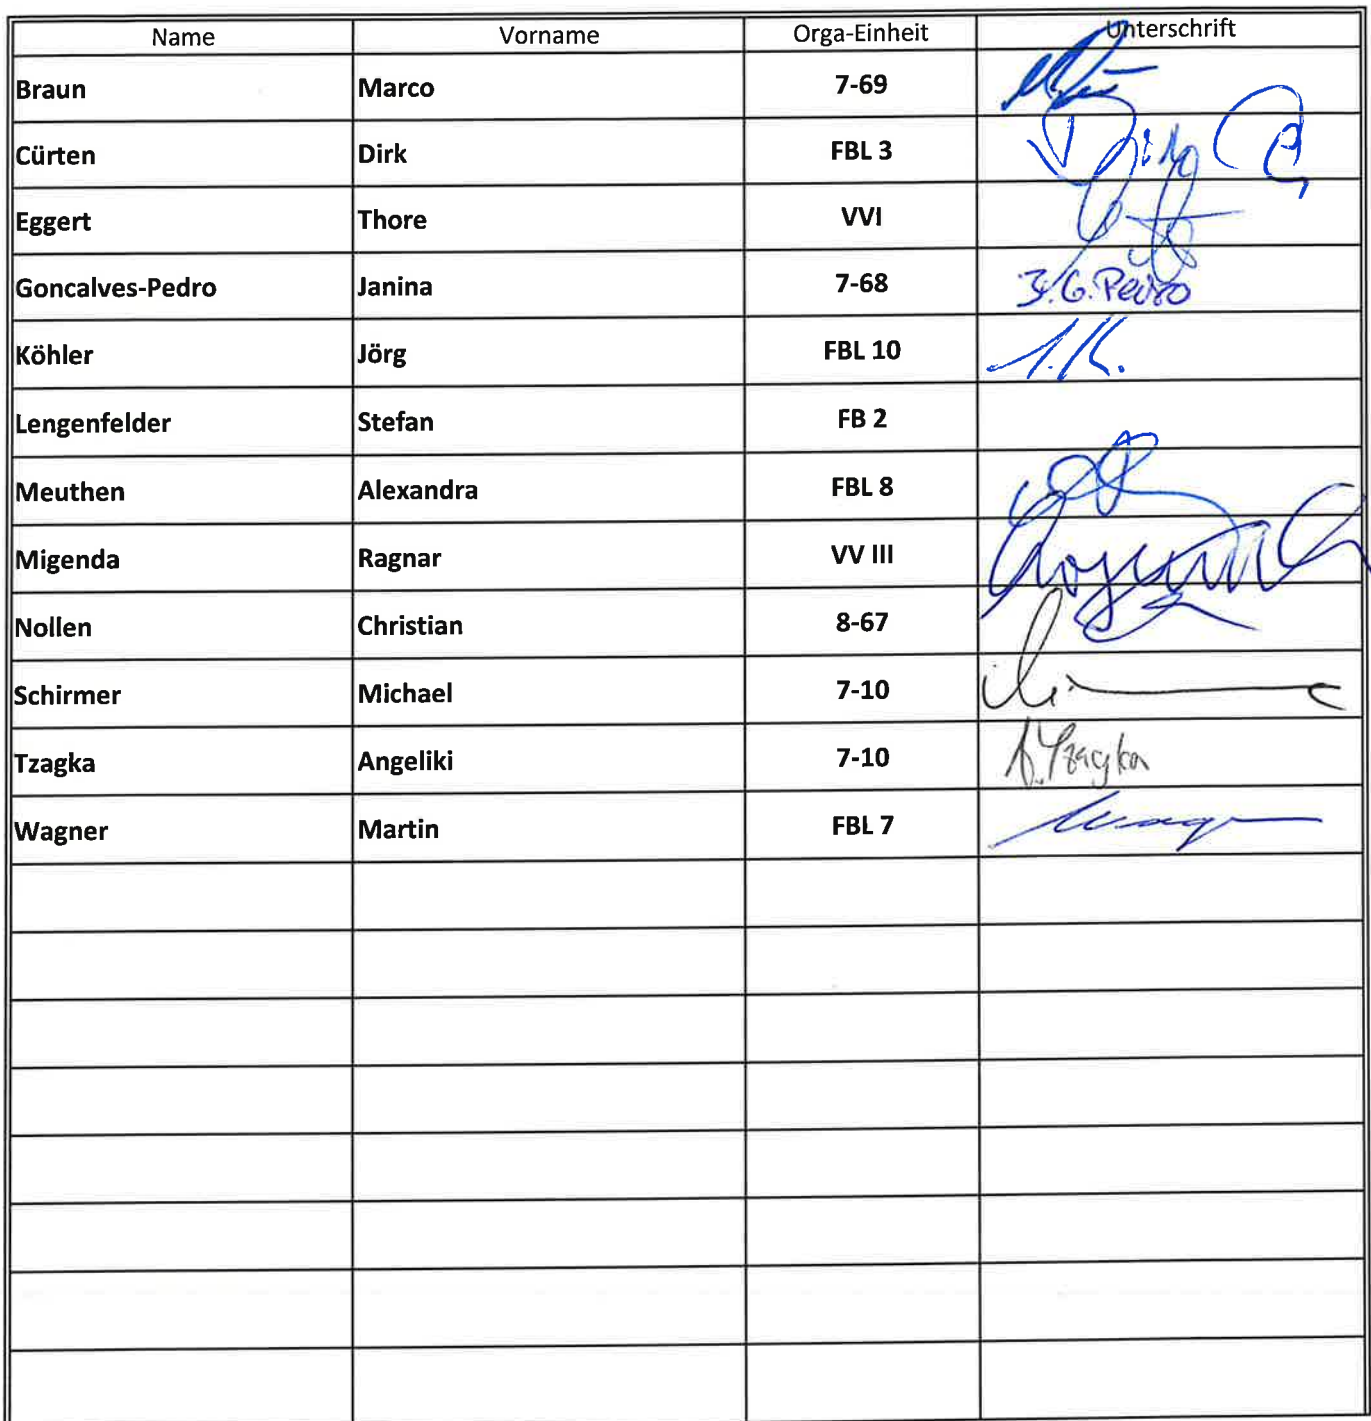 Name Vorname Orga-Einheit Unterschrift
Braun Marco 7-69
Cürten Dirk FBL 3
Eggert Thore VVI
Goncalves-Pedro Janina 7-68 J.G. Pedro
Köhler Jörg FBL 10 J.K.
Lengenfelder Stefan FB 2
Meuthen Alexandra FBL 8
Migenda Ragnar VV III
Nollen Christian 8-67
Schirmer Michael 7-10
Tzagka Angeliki 7-10 A. Tzagka
Wagner Martin FBL 7